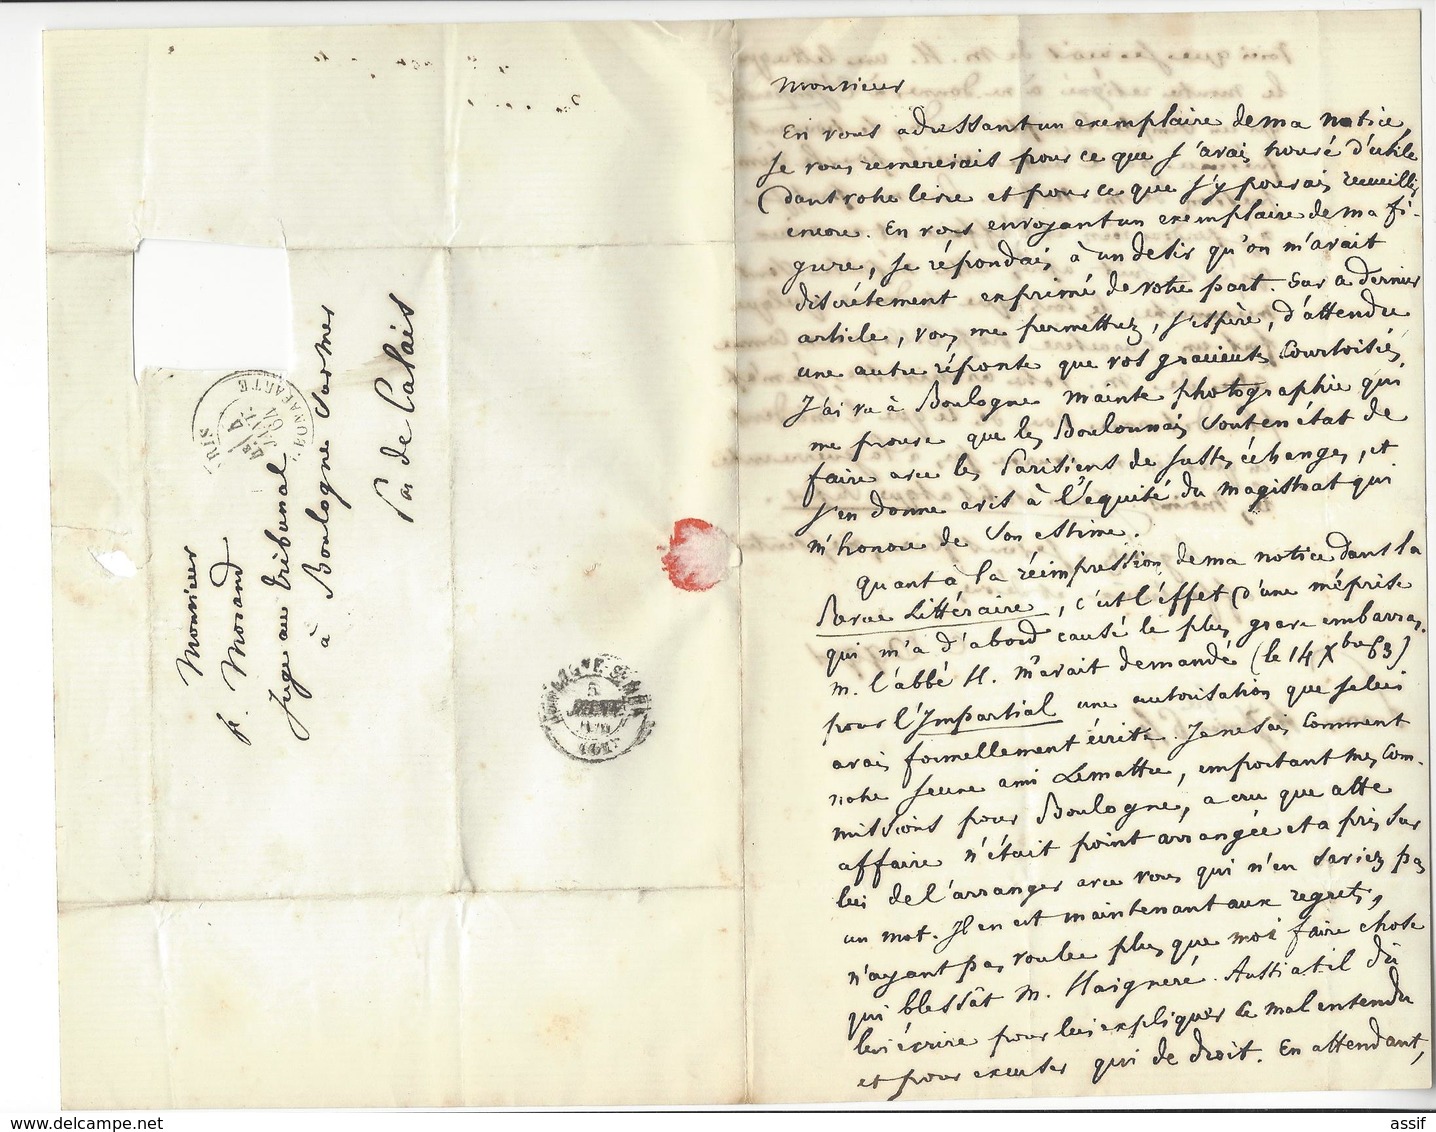 Monsieur
F. Morand
Juge au Tribunal
à Boulogne sur mer
Pas de Calais
Monsieur
En vous adressant un exemplaire de ma notice,
je vous remerciais pour ce que j'avais trouvé d'utile
dans votre livre et pour ce que j'y pouvais recueillir
encore. En vous envoyant un exemplaire de ma fi-
gure, je répondais à un desir qu'on m'avait
discrètement exprimé de votre part. Sur ce dernier
article, vous me permettrez, j'espère, d'attendre
une autre réponse que vos gracieuses courtoisies,
J'ai vu à Boulogne mainte photographie qui
me prouve que les Boulonnais sont en état de
faire avec les Parisiens de justes échanges, et
j'en donne avis à l'équité du magistrat qui
m'honore de son estime.
quant à la réimpression de ma notice dans la
Revue Littéraire, c'est l'effet d'une méprise
qui m'a d'abord causé le plus grave embarras.
M. l'abbé H. m'avait demandé (le 14 Xbre 63)
pour l'Impartial une autorisation que je lui
avais formellement écrite. Je ne sais comment
notre jeune ami Lemattre, emportant mes com-
missions pour Boulogne, a cru que cette
affaire n'était point arrangée et a pris sur
lui de l'arranger avec vous qui n'en saviez pas
un mot. Il en est maintenant aux regrets,
n'ayant pas voulu plus que moi faire chose
qui blessât M. Haigneré. Aussi a-t-il dû
lui écrire pour lui expliquer ce malentendu
et pour excuser qui de droit. En attendant,
BOULOGNE-S-MER
5
assif